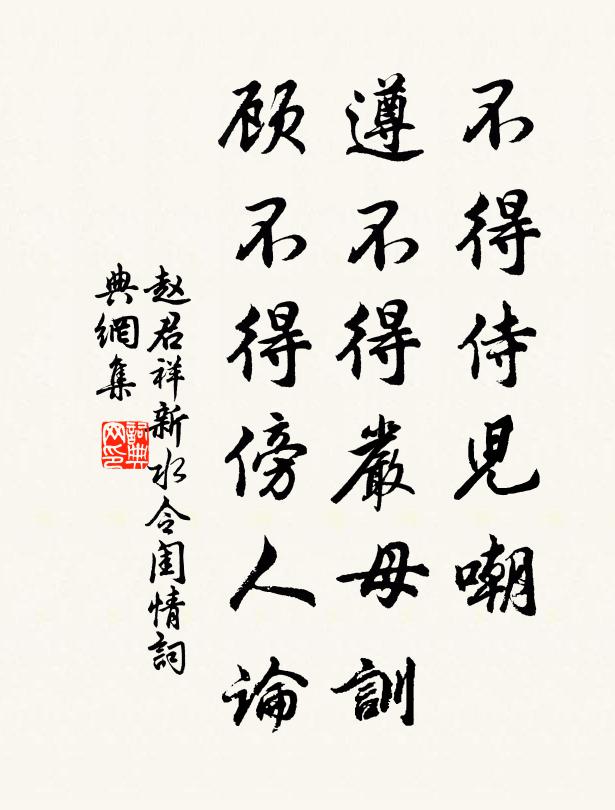 不得侍児嘲
遵不得嚴母訓
顾不得傍人論
赵君祥新水令闺情詞
典網集
詞典
网印